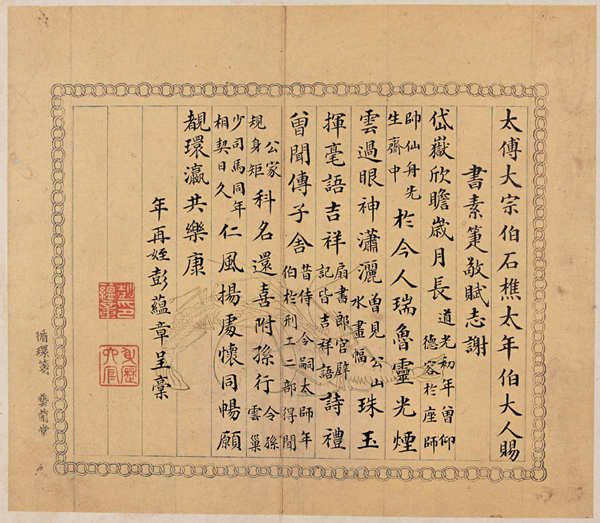 太傅大宗伯石樵太年伯大人賜
書素箑敬賦志謝
岱嶽欣瞻歲月長 道光初年曾仰
德容於座師
帥仙舟先
生齋中 於今人瑞魯靈光煙
雲過眼神瀟灑 曾見 公山
水畫幅 珠玉
揮毫語吉祥 扇書郎官辟
記皆吉祥語 詩禮
曾聞傳子舍 昔侍 今嗣太師年
伯於刑工二部得聞
公家
規身矩 科名還喜附孫行 令孫
雲巢
少司馬同年
相契日久 仁風揚處懷同暢願
覩環瀛共樂康
年再姪彭蘊章呈稾
循環箋 藝蘭堂